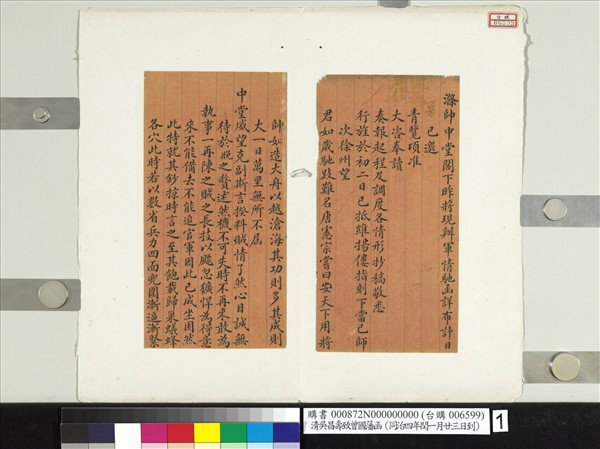 滌師中堂閣下昨將現辦軍情馳函詳布計日
已邀
青覽頃准
大咨奉讀
奏報起程及調度各情形抄稿敬悉
行旌於初二日已抵維揚僂指刻下當已師
次徐州望
君如歲馳跂難名唐憲宗嘗曰安天下用將
帥如造大舟以越滄海其功則多其成則
大一日萬里無所不屆
中堂威望克副斯言揆料賊情了然心目誠無
待於晛之贅述然機不可失時不再來敢為
執事一再陳之賊之長技以飈忽獷悍為得意
來不能備去不能追官軍因此已成坐困然
此特就其鈔掠時言之至其飽載歸巢蟻蜂
各穴此時若以數省兵力四面兜圍漸逼漸緊
購書 000872N000000000 (台購 006599)
清吳昌壽致曾國藩函 (同治四年閏一月廿三日到)
1